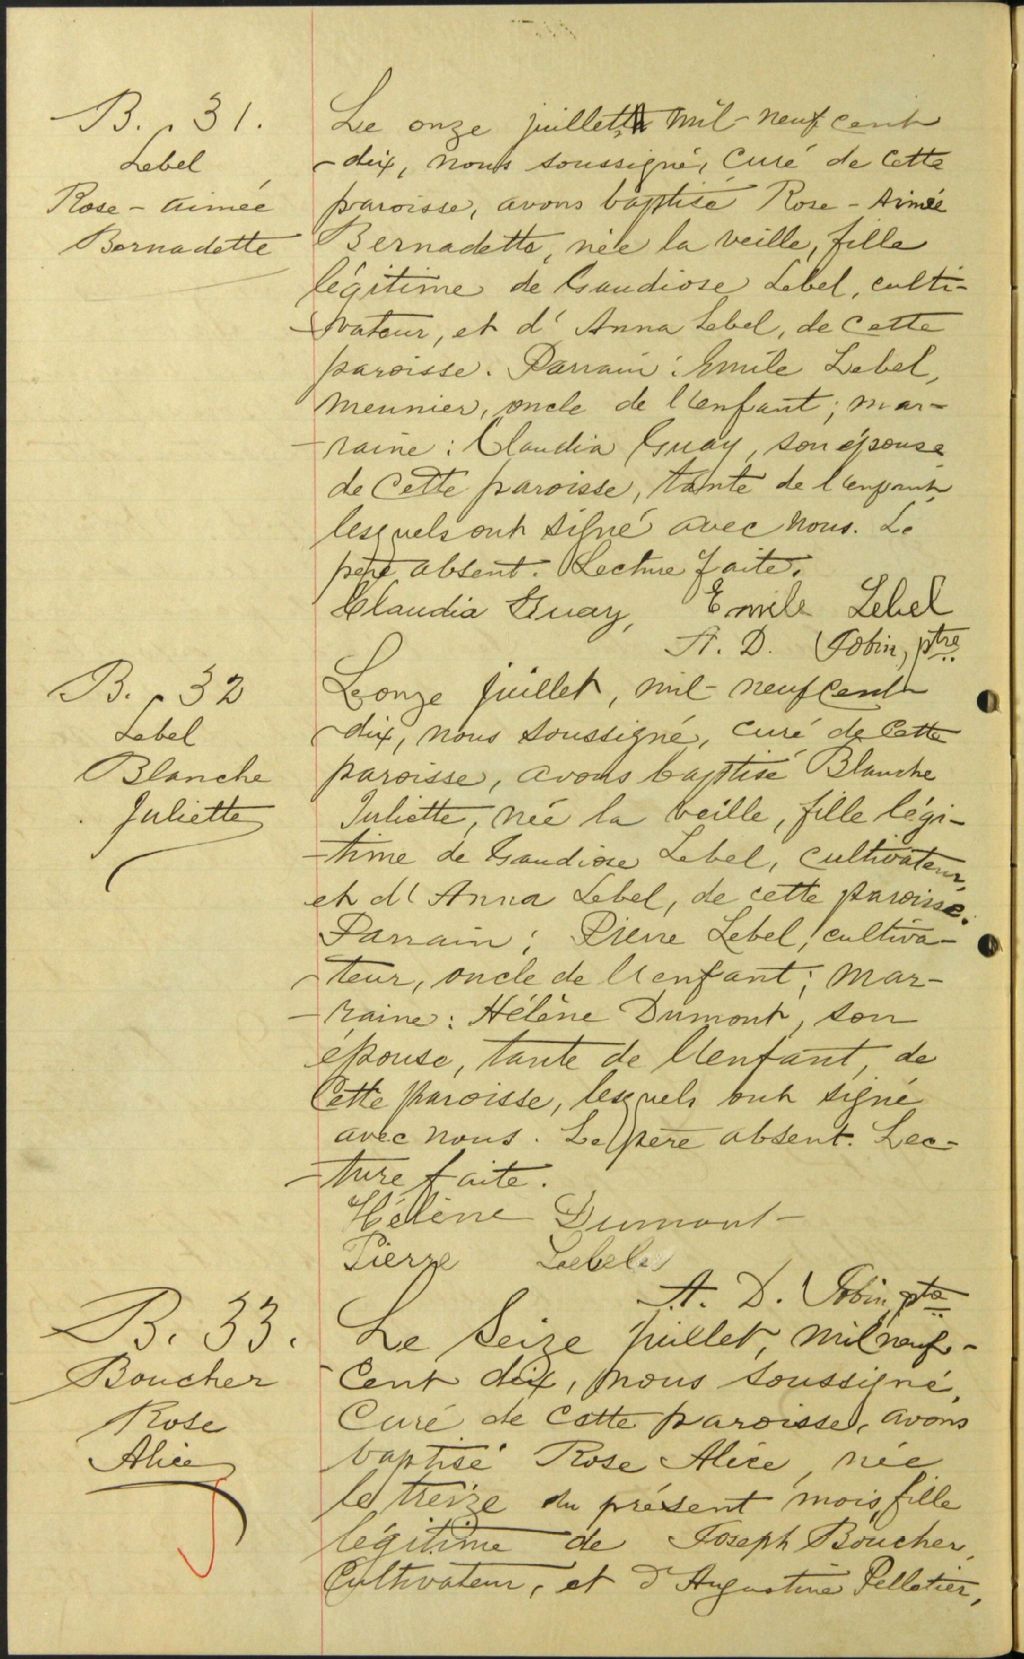 B. 31.
Lebel
Rose-Aimée
Bernadette
Le onze juillet, mil-neuf cent
-dix, nous soussigné, curé de cette
paroisse, avons baptisé Rose-Aimée
Bernadette, née la veille, fille
légitime de Gaudiose Lebel, culti-
-vateur, et d'Anna Lebel, de cette
paroisse. Parrain: Emile Lebel,
meunier, oncle de l'enfant; mar-
-raine: Claudia Guay, son épouse
de cette paroisse, tante de l'enfant,
lesquels ont signé avec nous. Le
père absent. Lecture faite.
Claudia Guay, Emile Lebel
A. D. Tobin, ptre
B. 32
Lebel
Blanche
Juliette
Le onze juillet, mil-neuf cent
-dix, nous soussigné, curé de cette
paroisse, avons baptisé Blanche
Juliette, née la veille, fille légi-
-time de Gaudiose Lebel, cultivateur,
et d'Anna Lebel, de cette paroisse.
Parrain: Pierre Lebel, cultiva-
-teur, oncle de l'enfant; mar-
-raine: Hélène Dumont, son
épouse, tante de l'enfant, de
cette paroisse, lesquels ont signé
avec nous. Le père absent. Lec-
-ture faite.
Hélène Dumont
Pierre Lebel
A. D. Tobin, ptre
B. 33.
Boucher
Rose
Alice
Le Seize juillet, mil neuf-
-cent dix, nous soussigné,
Curé de cette paroisse, avons
baptisé Rose Alice, née
le treize du présent mois, fille
légitime de Joseph Boucher,
Cultivateur, et d'Augustine Pelletier,